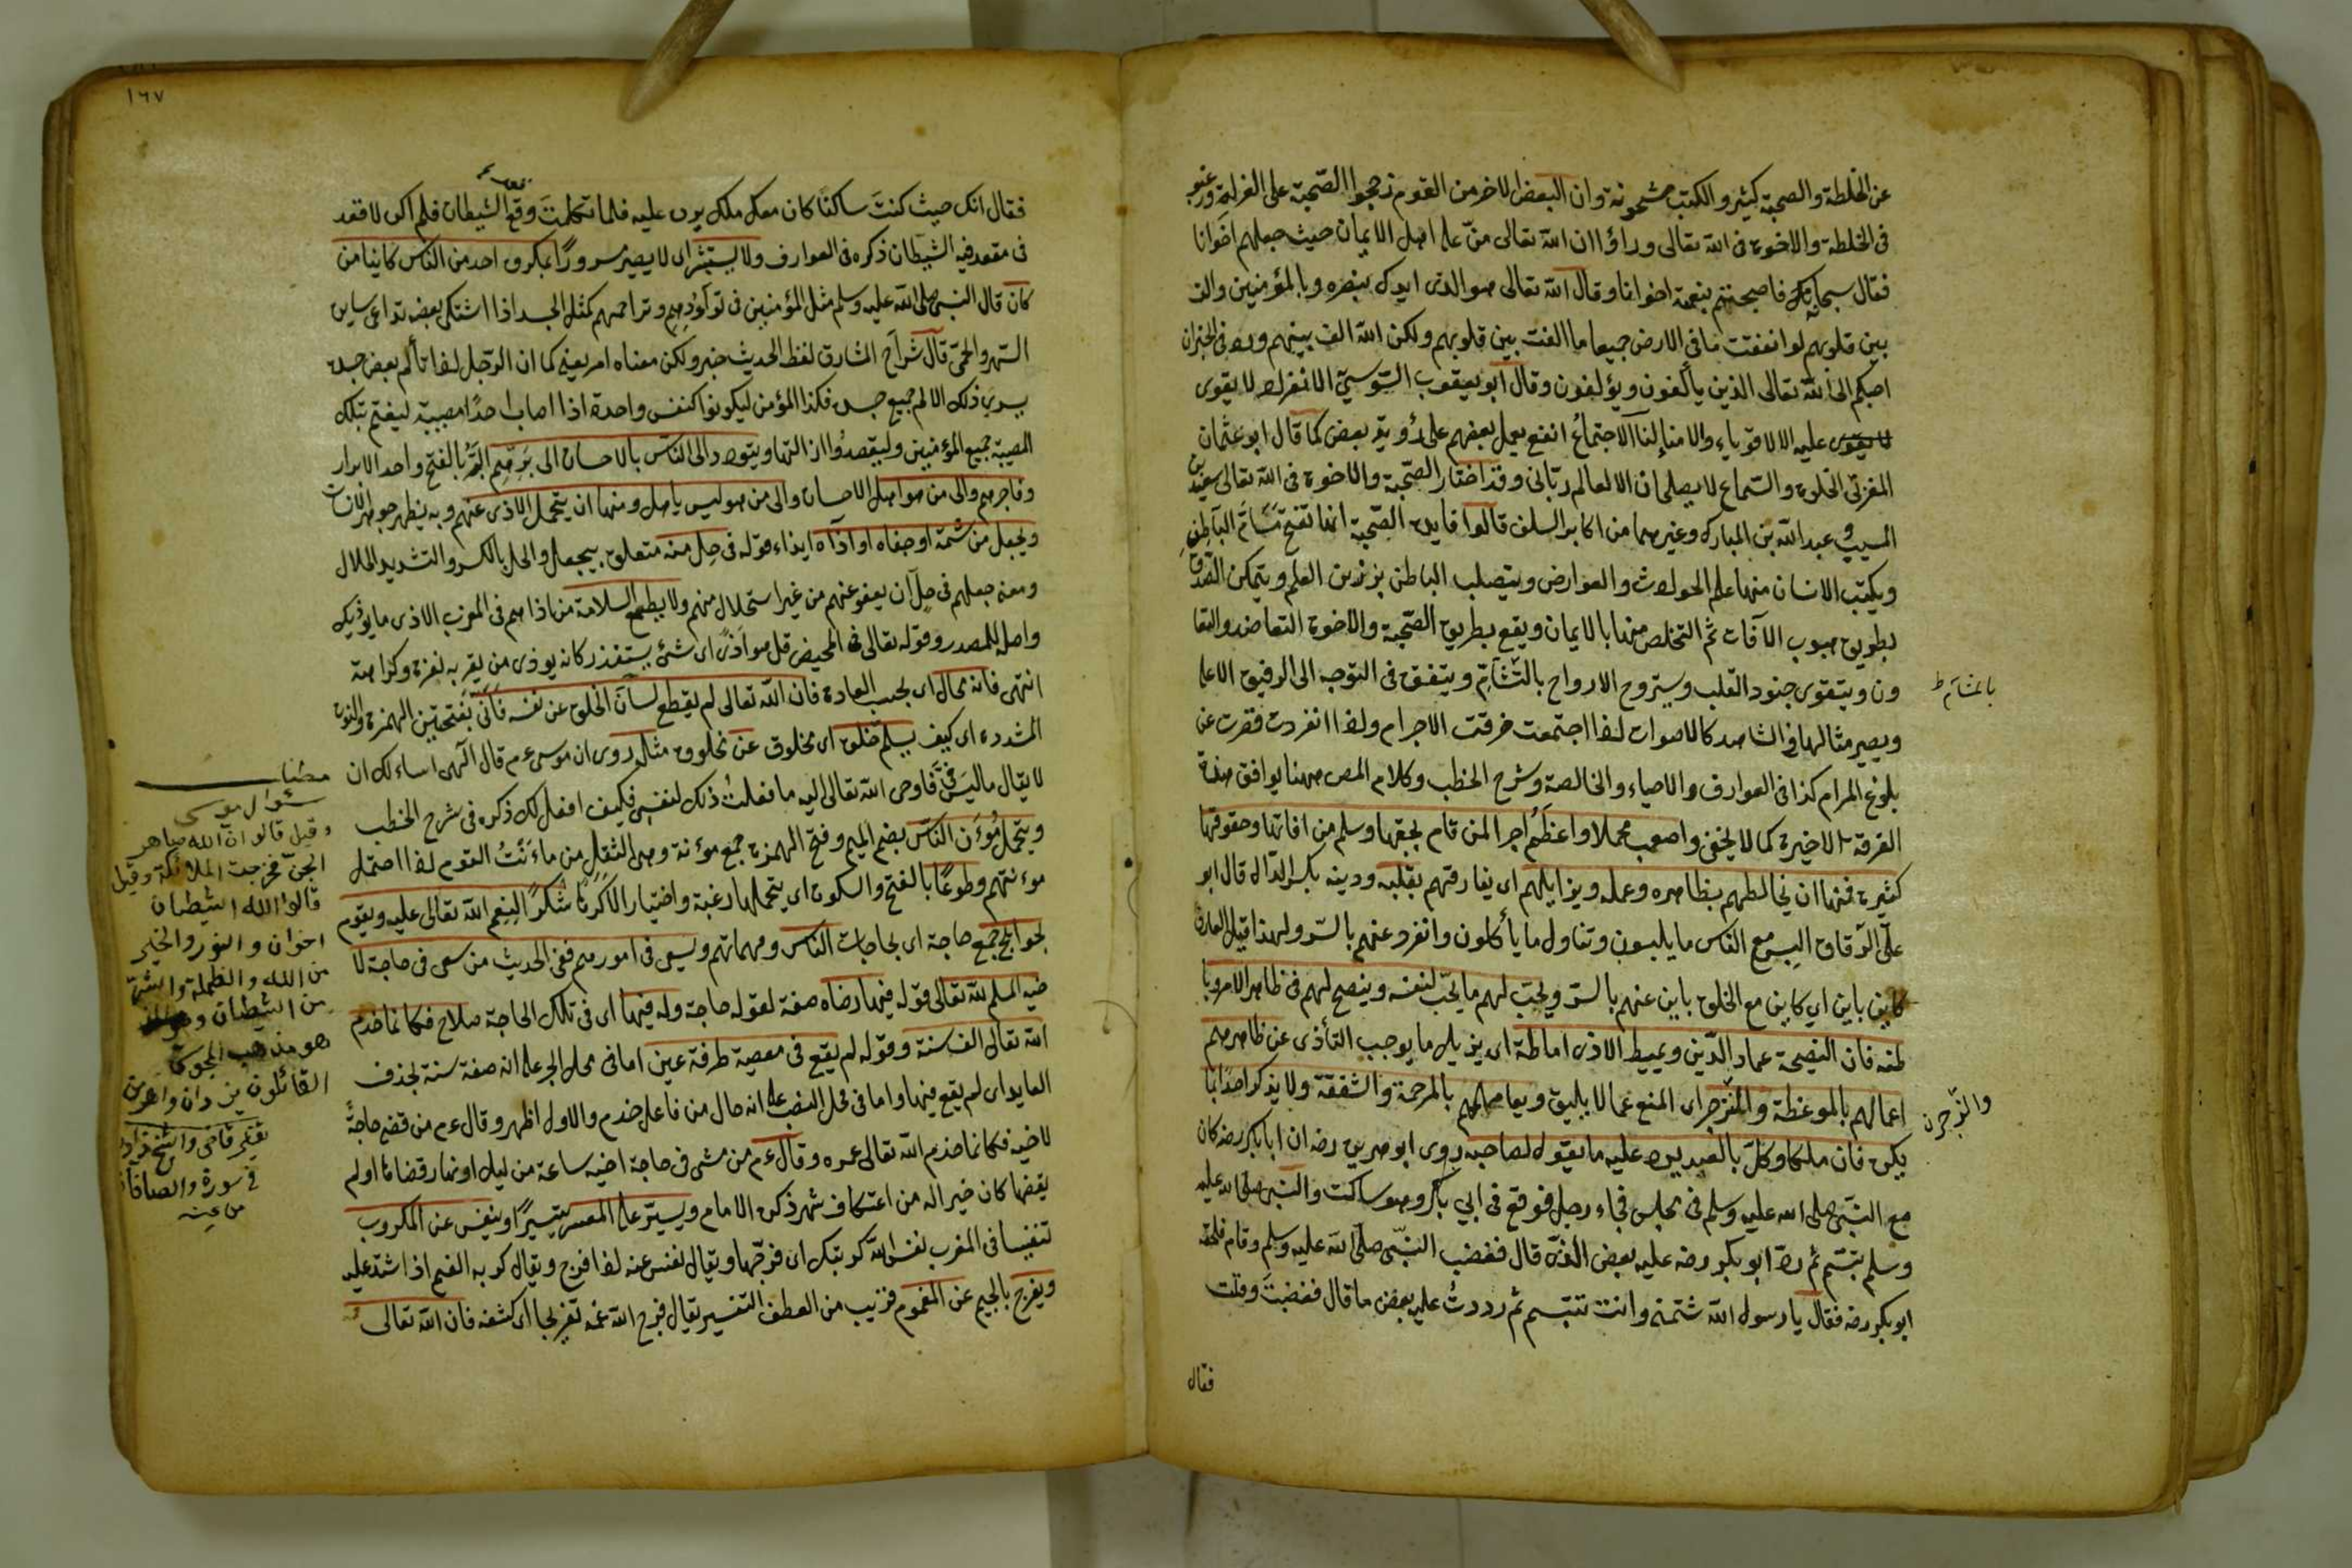 عن الخلطة والصحبة كثير والكتب مشحونة وان البعض الاخر من القوم رجحوا الصحبة على العزلة ورغبو
فى الخلطة والاخوة فى الله تعالى وراؤا ان الله تعالى منّ على اهل الايمان حيث جعلهم اخوانا
فقال سبحانه فاصبحتم بنعمة اخوانا وقال الله تعالى هو الذى ايدك بنصره وبالمؤمنين والف
بين قلوبهم لو انفقت ما فى الارض جميعا ما الفت بين قلوبهم ولكن الله الف بينهم وورد فى الخبر ان
احبكم الى الله تعالى الذين يألفون ويؤلفون وقال ابو يعقوب السّوسىّ الانفراد لا يقوى
عليه الا الاقوياء والامثالنا الاجتماع انفع يعمل بعضهم على رؤية بعض كما قال ابو عثمان
المغربى الخلوة والسّماع لا يصلحان الا لعالم ربّانى وقد اختار الصّحبة والاخوة فى الله تعالى سعيد بن
المسيب وعبد الله بن المبارك وغيرهما من اكابر السلف قالوا فايدة الصّحبة انها تفتح مسامّ الباطن
ويكتب الانسان منها علم الحوادث والعوارض ويتصلب الباطن برزين العلم ويتمكن الصدق
بطريق هبوب الآفات ثم التخلص منها بالايمان ويقع بطريق الصّحبة والاخوة التعاضد والتعا
ون ويتقوى جنود القلب ويستروح الارواح بالتّشامّ ويتفق فى التوجه الى الرفيق الاعلى
بالتشام ط
ويصير مثالها فى الشاهد كالاصوات اذا اجتمعت خرقت الاجرام واذا انفردت قصرت عن
بلوغ المرام كذا فى العوارف والاحياء والخالصة وشرح الخطب وكلام المص ههنا يوافق هذه
الفرقة الاخيرة كما لا يخفى واصعب محملا واعظم اجرا لمن قام بحقها وسلم من افاتها وحقوقها
كثيرة فمنها ان يخالطهم بظاهره وعمله ويزايلهم اى يفارقهم بقلبه ودينه بكسر الدال قال ابو
على الدّقاق البس مع الناس ما يلبسون وتناول ما يأكلون وانفرد عنهم بالسّر ولهذا قيل العارف
كاين باين اي كاين مع الخلق باين عنهم بالسّر ويحبّ لهم ما يحبّ لنفسه وينصح لهم فى ظاهر الامر وبا
طنه فان النصيحة عماد الدّين ويميط الاذى اماطة اى يزيل ما يوجب التأذى عن ظاهرهم
اعمالهم بالموعظة والزجر اى المنع عما لا يليق ويعاملهم بالمرحمة والشفقة ولا يذكر احدا بما
يكره فان ملكا وكلّ بالعبد يرد عليه ما يقول لصاحبه روى ابو هريرة رضه ان ابا بكر رضه كان
مع النبى صلى الله عليه وسلم فى مجلس فجاء رجل فوقع فى ابي بكر وهو ساكت والنبى صلى الله عليه
وسلم يتبسّم ثم ردّ ابو بكر رضه عليه بعض الذى قال فغضب النبّى صلى الله عليه وسلم وقام فلحقه
ابو بكر رضه فقال يا رسول الله شتمنى وانت تتبسم ثم رددتُ عليه بعض ما قال فغضبتَ وقمت
فقال
١٦٧
فقال انك حيث كنتَ ساكتا كان معك ملك يرد عليه فلما تكلمتَ وقع الشيطان فلم اكن لاقعد
فى مقعد فيه الشيطان ذكره فى العوارف ولا يستبشر اى لا يصير مسرورًا بمكروه احد من الناس كاينا من
كان قال النبى صلى الله عليه وسلم مثل المؤمنين فى توادهم وتراحمهم كمثل الجسد اذا اشتكى بعضه تداعى سايره
السّهر والحمى قال شراح المشارق لفظ الحديث خبر ولكن معناه امر يعنى كما ان الرّجل اذا تألم بعض جسده
يسري ذلك الالم جميع جسده فكذا المؤمن ليكونوا كنفس واحدة اذا اصاب احدًا مصيبة ليغتم بتلك
المصيبة جميع المؤمنين وليقصدوا ازالتها ويتودد الى الناس بالاحسان الى برّهم البَرّ بالفتح واحد الابرار
وفاجرهم والى من هو اهل الاحسان والى من هو ليس باهل ومنها ان يتحمل الاذى عنهم وبه يظهر جوهر الانسان
ويجعل من شتمه او جفاه او آذاه ايذاء قوله فى حِلّ منه متعلق بيجعل والحل بالكسر والتشديد الحلال
ومعنى جعلهم فى حل ان يعفو عنهم من غير استحلال منهم ولا يطمع السلامة من اذاهم فى المغرب الاذى ما يؤذيك
واصله المصدر وقوله تعالى فى المحيض قل هو اذى اى شئ يستقذر كانه يوذى من يقربه نفرة وكراهة
انتهى فانه محال اى بحسب العادة فان الله تعالى لم يقطع لسان الخلق عن نفسه فَاَنّى بفتحتين الهمزة والنون
المشددة اى كيف يسلم خلق اى مخلوق عن مخلوق مثله روى ان موسى عم قال الهى اسالك ان
لا يقال ما ليس فىّ فاوحى الله تعالى اليه ما فعلت ذلك لنفسى فكيف افعل لك ذكره فى شرح الخطب
ويتحمل مُؤَن الناس بضم الميم وفتح الهمزة جمع مؤنة وهى الثقل من مأنتُ القوم اذا احتمل
مؤنتهم وطوعًا بالفتح والسكون اى يتحملها رغبة واختيارا لا كرها شكرًا لِنِعم الله تعالى عليه ويقوم
بحوايج جمع حاجة اى بحاجات الناس ومهماتهم ويسعى فى امورهم ففى الحديث من سعى فى حاجة لا
خيه المسلم لله تعالى قوله فيها رضاه صفة لقوله حاجة وله فيها اى فى تلك الحاجة صلاح فكانما خدم
الله تعالى الف سنة وقوله لم يقع فى معصية طرفة عين اما فى محل الجر على انه صفة سنة بحذف
العايد اى لم يقع فيها واما فى محل النصب على انه حال من فاعل خدم والاول اظهر وقال عم من قضى حاجةً
لاخيه فكانما خدم الله تعالى عمره وقال عم من مشى فى حاجة اخيه ساعة من ليل او نهار قضاها او لم
يقضها كان خيرا له من اعتكاف شهر ذكره الامام ويسّر على المعسر تيسيرًا وينفس عن المكروب
تنفيسا فى المغرب نفس الله كربتك اى فرجها ويقال نفس عنه اذا فرج ويقال كربه الغم اذا اشتد عليه
ويفرج بالجيم عن المغموم قريب من العطف التفسير يقال فرج الله غمه تفريجا اى كشفه فان الله تعالى
سؤال موسى
وقيل قالوا ان الله صاهر
الجن فخرجت الملائكة وقيل
قالوا الله والشيطان
اخوان والنور والخير
من الله والظلمة والشر
من الشيطان
هو مذهب المجوس
القائلون يزدان واهرمن
تفسير قاضى وشيخ زاده
فى سورة والصافات
من عينه